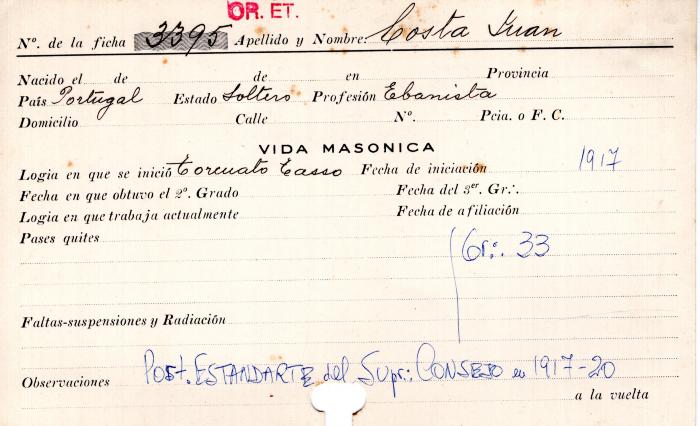 OR. ET.
Nº. de la ficha 3395 Apellido y Nombre: Costa Juan
Nacido el de de en Provincia
País Portugal Estado Soltero Profesión Ebanista
Domicilio Calle Nº. Pcia. o F. C.
VIDA MASONICA
Logia en que se inició Torcuato Tasso Fecha de iniciación 1917
Fecha en que obtuvo el 2º. Grado Fecha del 3er. Gr∴
Logia en que trabaja actualmente Fecha de afiliación
Pases quites
Gr∴ 33
Faltas-suspensiones y Radiación
Observaciones Port. ESTANDARTE del Supr∴ CONSEJO en 1917-20
a la vuelta